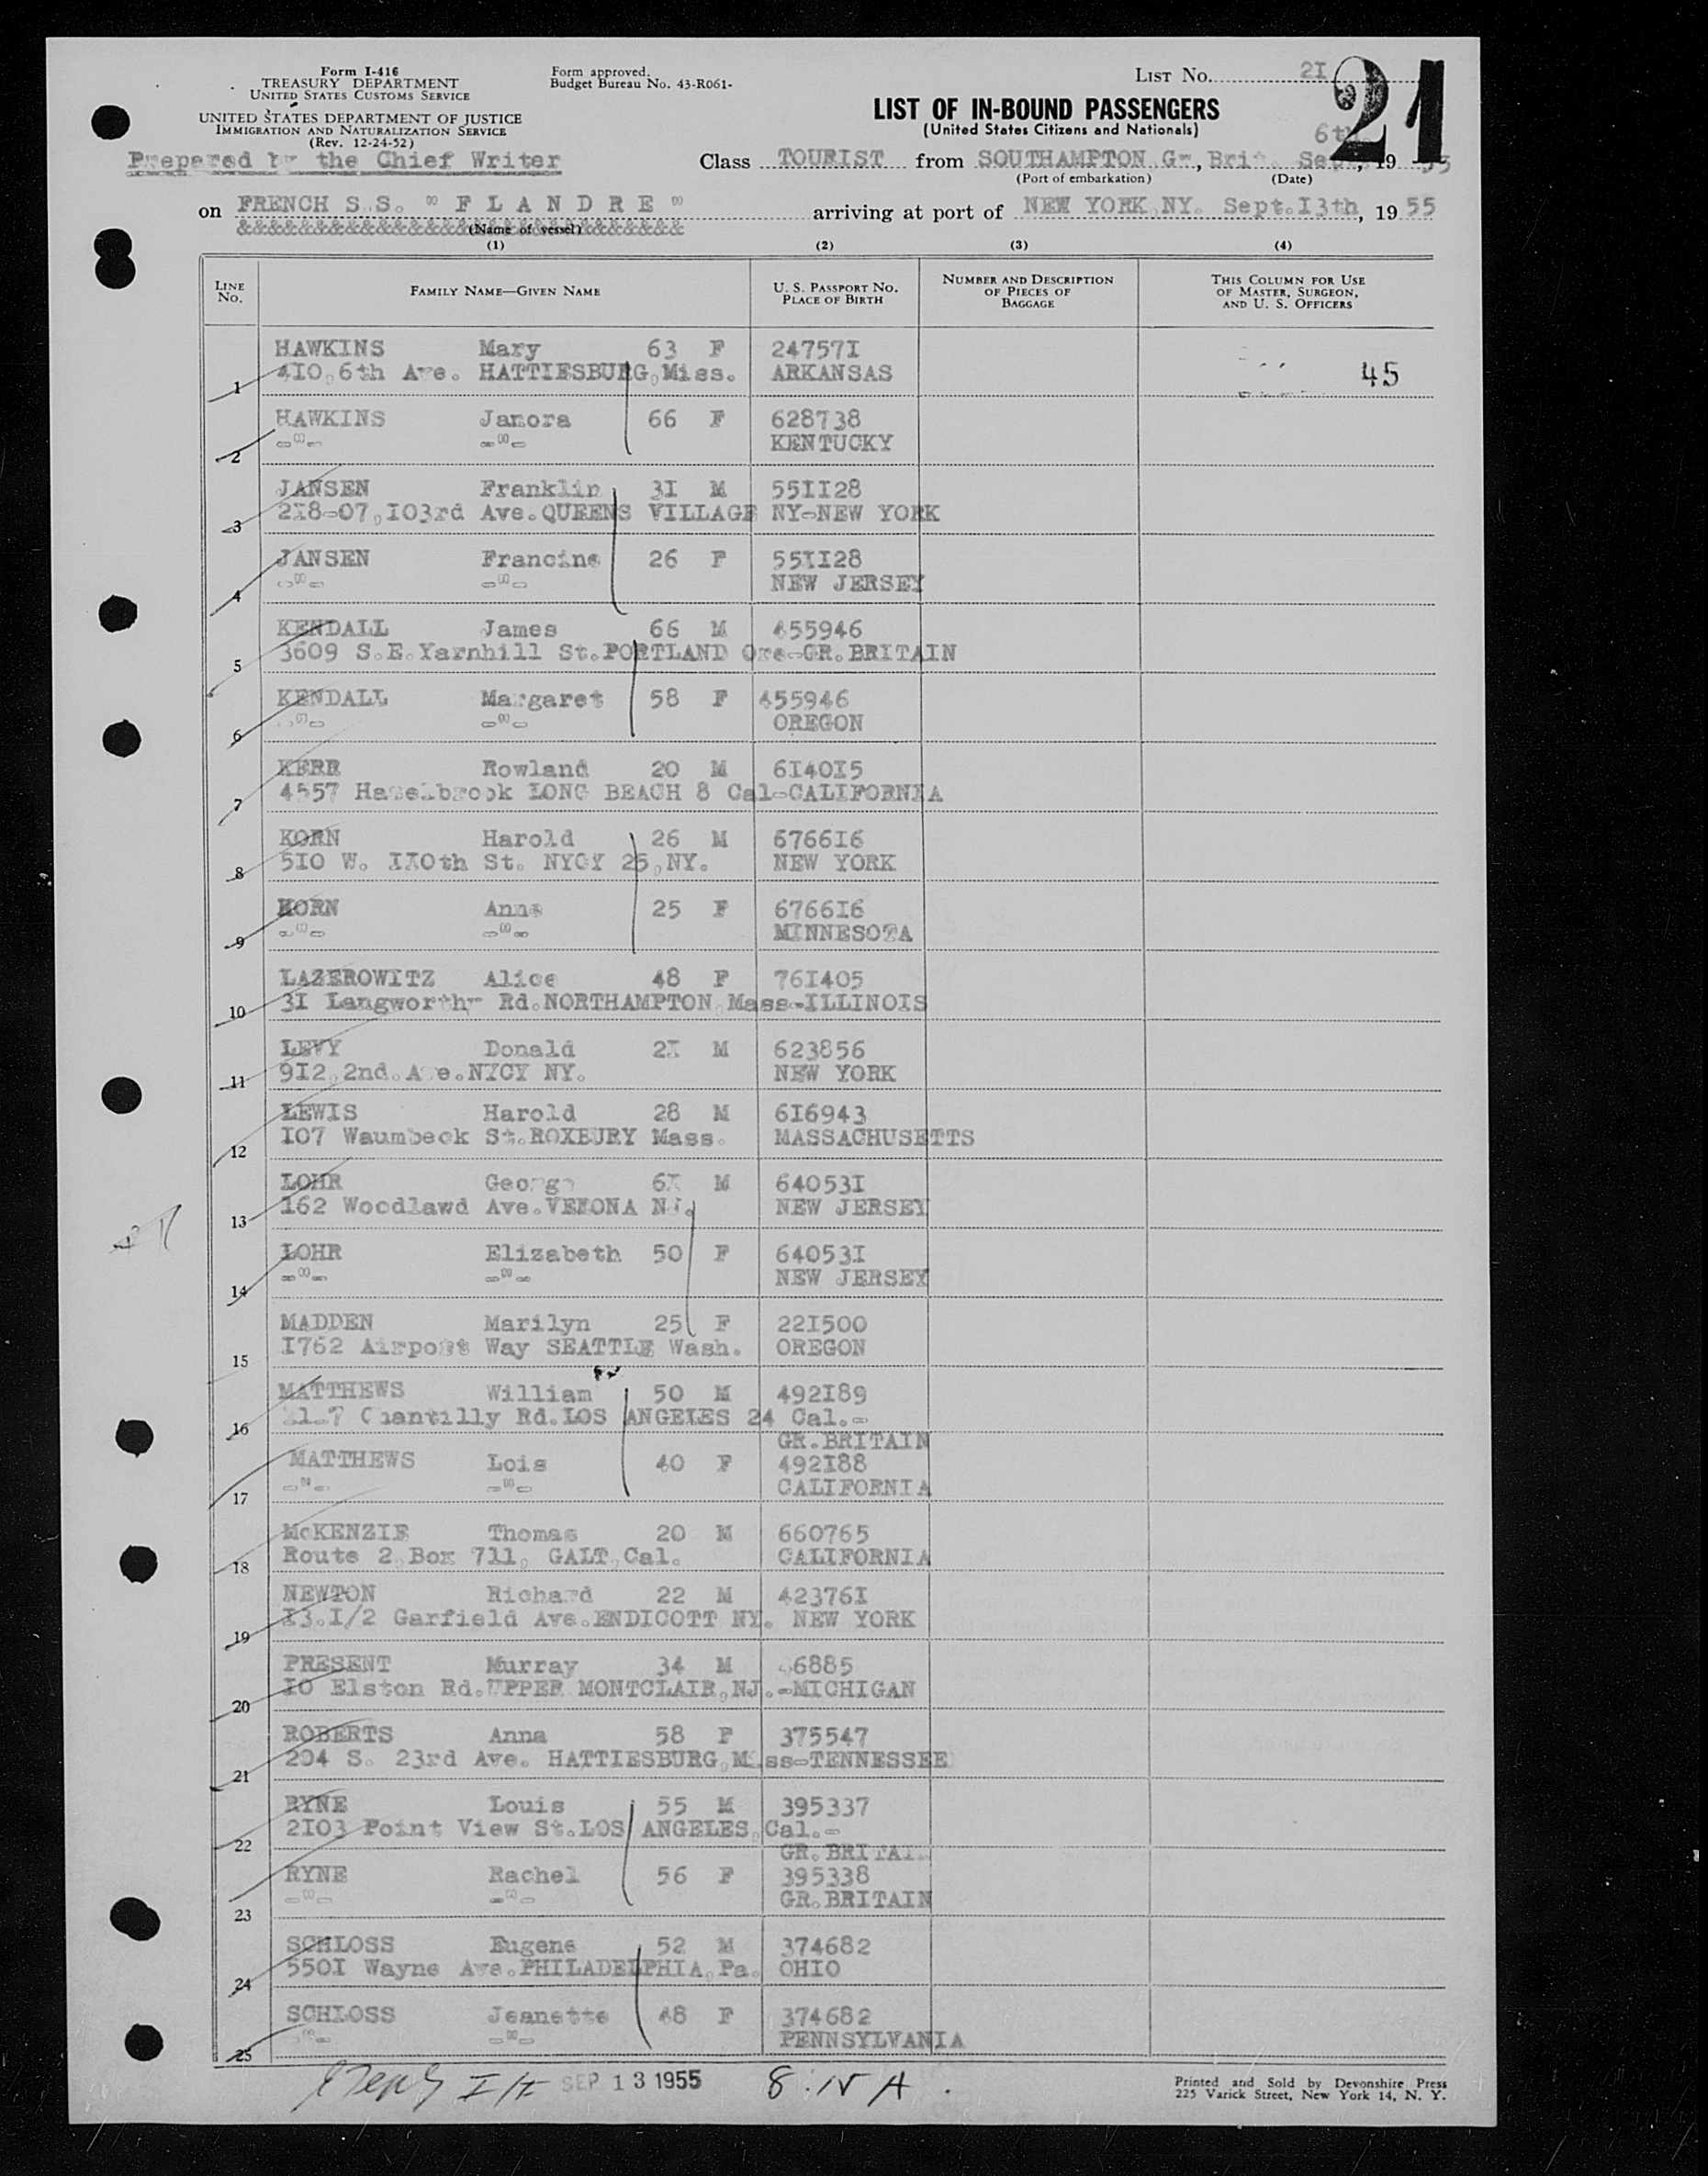 Form I-416
TREASURY DEPARTMENT
UNITED STATES CUSTOMS SERVICE
UNITED STATES DEPARTMENT OF JUSTICE
IMMIGRATION AND NATURALIZATION SERVICE
(Rev. 12-24-52)
Prepared by the Chief Writer
Form approved.
Budget Bureau No. 43-R061-
LIST No. 2I
21
LIST OF IN-BOUND PASSENGERS
(United States Citizens and Nationals)
6th
Class TOURIST from SOUTHAMPTON Gr, Brit. Sept, 19 55
(Port of embarkation) (Date)
on FRENCH S.S. " F L A N D R E " arriving at port of NEW YORK,NY. Sept.I3th, 19 55
&&&&&&&&&&&&&&&&&&&&&&&&&&&&&
(Name of vessel)
(1) (2) (3) (4)
LINE No. FAMILY NAME—GIVEN NAME U. S. PASSPORT No. PLACE OF BIRTH NUMBER AND DESCRIPTION OF PIECES OF BAGGAGE THIS COLUMN FOR USE OF MASTER, SURGEON, AND U. S. OFFICERS
HAWKINS Mary 63 F 24757I
1 4I0,6th Ave. HATTIESBURG,Miss. ARKANSAS 45
HAWKINS Janora 66 F 628738
2 -"- -"- KENTUCKY
JANSEN Franklin 3I M 55II28
3 2I8-07,I03rd Ave.QUEENS VILLAGE NY-NEW YORK
JANSEN Francine 26 F 55II28
4 -"- -"- NEW JERSEY
KENDALL James 66 M 455946
5 3609 S.E.Yarnhill St.PORTLAND Ore-GR.BRITAIN
KENDALL Margaret 58 F 455946
6 -"- -"- OREGON
KERR Rowland 20 M 6I40I5
7 4557 Hazelbrook LONG BEACH 8 Cal-CALIFORNIA
KORN Harold 26 M 6766I6
8 5I0 W. II0th St. NYCY 25,NY. NEW YORK
KORN Anne 25 F 6766I6
9 -"- -"- MINNESOTA
LAZEROWITZ Alice 48 F 76I405
10 3I Langworthy Rd.NORTHAMPTON,Mass-ILLINOIS
LEVY Donald 2I M 623856
11 9I2,2nd.Ave.NYCY NY. NEW YORK
LEWIS Harold 28 M 6I6943
12 I07 Waumbeck St.ROXBURY Mass. MASSACHUSETTS
LOHR George 6I M 64053I
13 I62 Woodlawd Ave.VERONA NJ. NEW JERSEY
LOHR Elizabeth 50 F 64053I
14 -"- -"- NEW JERSEY
MADDEN Marilyn 25 F 22I500
15 I762 Airport Way SEATTLE Wash. OREGON
MATTHEWS William 50 M 492I89
16 Chantilly Rd.LOS ANGELES 24 Cal.-
GR.BRITAIN
MATTHEWS Lois 40 F 492I88
17 -"- -"- CALIFORNIA
McKENZIE Thomas 20 M 660765
18 Route 2,Box 711, GALT,Cal. CALIFORNIA
NEWTON Richard 22 M 42376I
19 I3.I/2 Garfield Ave.ENDICOTT NY. NEW YORK
PRESENT Murray 34 M 6885
20 I0 Elston Rd.UPPER MONTCLAIR,NJ.-MICHIGAN
ROBERTS Anna 58 F 375547
21 204 S. 23rd Ave. HATTIESBURG,Miss-TENNESSEE
RYNE Louis 55 M 395337
22 2I03 Point View St.LOS ANGELES,Cal.-
GR.BRITAIN
RYNE Rachel 56 F 395338
23 -"- -"- GR.BRITAIN
SCHLOSS Eugene 52 M 374682
24 550I Wayne Ave.PHILADELPHIA,Pa. OHIO
SCHLOSS Jeanette 48 F 374682
25 -"- -"- PENNSYLVANIA
SEP 13 1955
Printed and Sold by Devonshire Press
225 Varick Street, New York 14, N. Y.